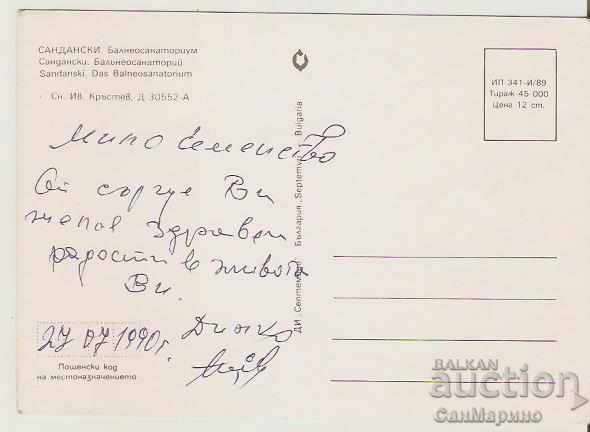 САНДАНСКИ. Балнеосанаториум
Сандански. Бальнеосанаторий
Sandanski. Das Balneosanatorium
Сн. Ив. Кръстев, Д 30552-А
ИП 341-И/89
Тираж 45 000
Цена 12 ст.
ДИ „Септември" България „Septemvri" Bulgaria
Мило семейство
От сърце Ви
желая здраве и
радости в живота
Ви.
27 07 1990г.
Динко
Пощенски код
на местоназначението
BALKAN
auction
СанМарино